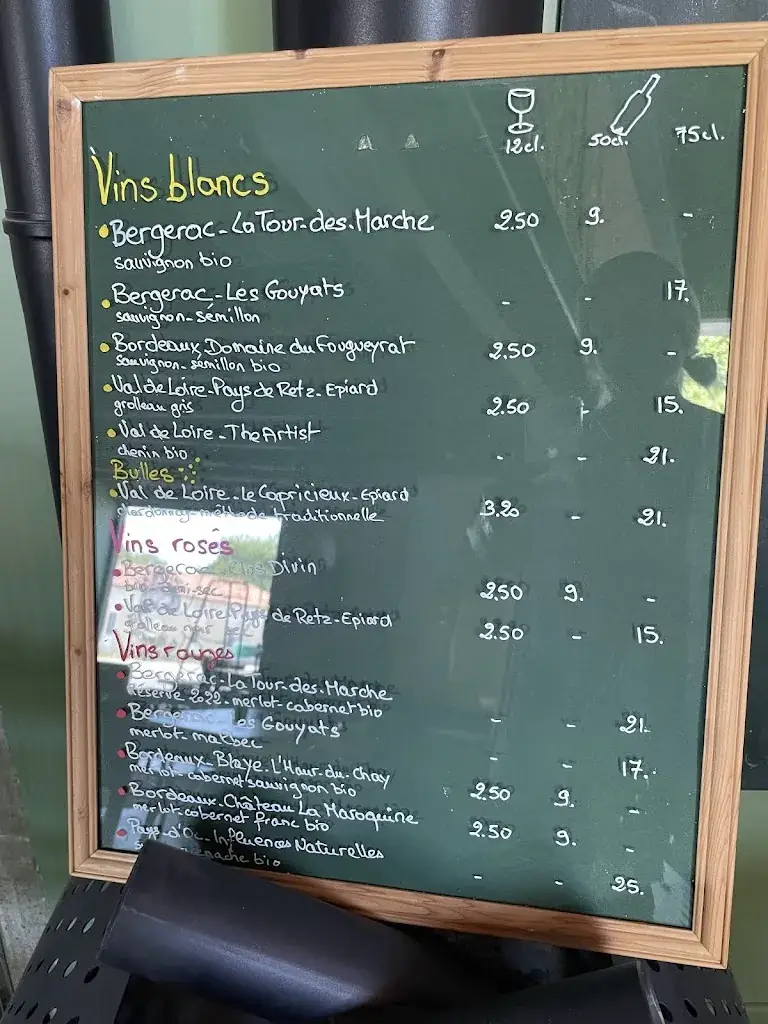 12cl. 50cl. 75cl.
Vins blancs
Bergerac-La Tour-des-Marche 2.50 9. -
sauvignon bio
Bergerac-Les Gouyats - - 17.
sauvignon-sémillon
Bordeaux Domaine du Fougueyrat 2.50 9. -
sauvignon-sémillon bio
Val de Loire-Pays de Retz-Epiard 2.50 - 15.
grolleau gris
Val de Loire-The Artist - - 21.
chenin bio
Bulles
Val de Loire-le Capricieux-Epiard 3.20 - 21.
chardonnay-méthode traditionnelle
Vins rosés
Bergerac-Clos Divin 2.50 9. -
bio demi-sec
Val de Loire Pays de Retz-Epiard 2.50 - 15.
grolleau noir sec
Vins rouges
Bergerac-La Tour-des-Marche - - 21.
Réserve 2022-merlot-cabernet bio
Bergerac-Les Gouyats - - 17.
merlot-malbec
Bordeaux-Blaye. L'Haur-du-Chay 2.50 9. -
merlot-cabernet sauvignon bio
Bordeaux-Château La Maroquine 2.50 9. -
merlot-cabernet franc bio
Pays-d'Oc-Influences Naturelles - - 25.
bio